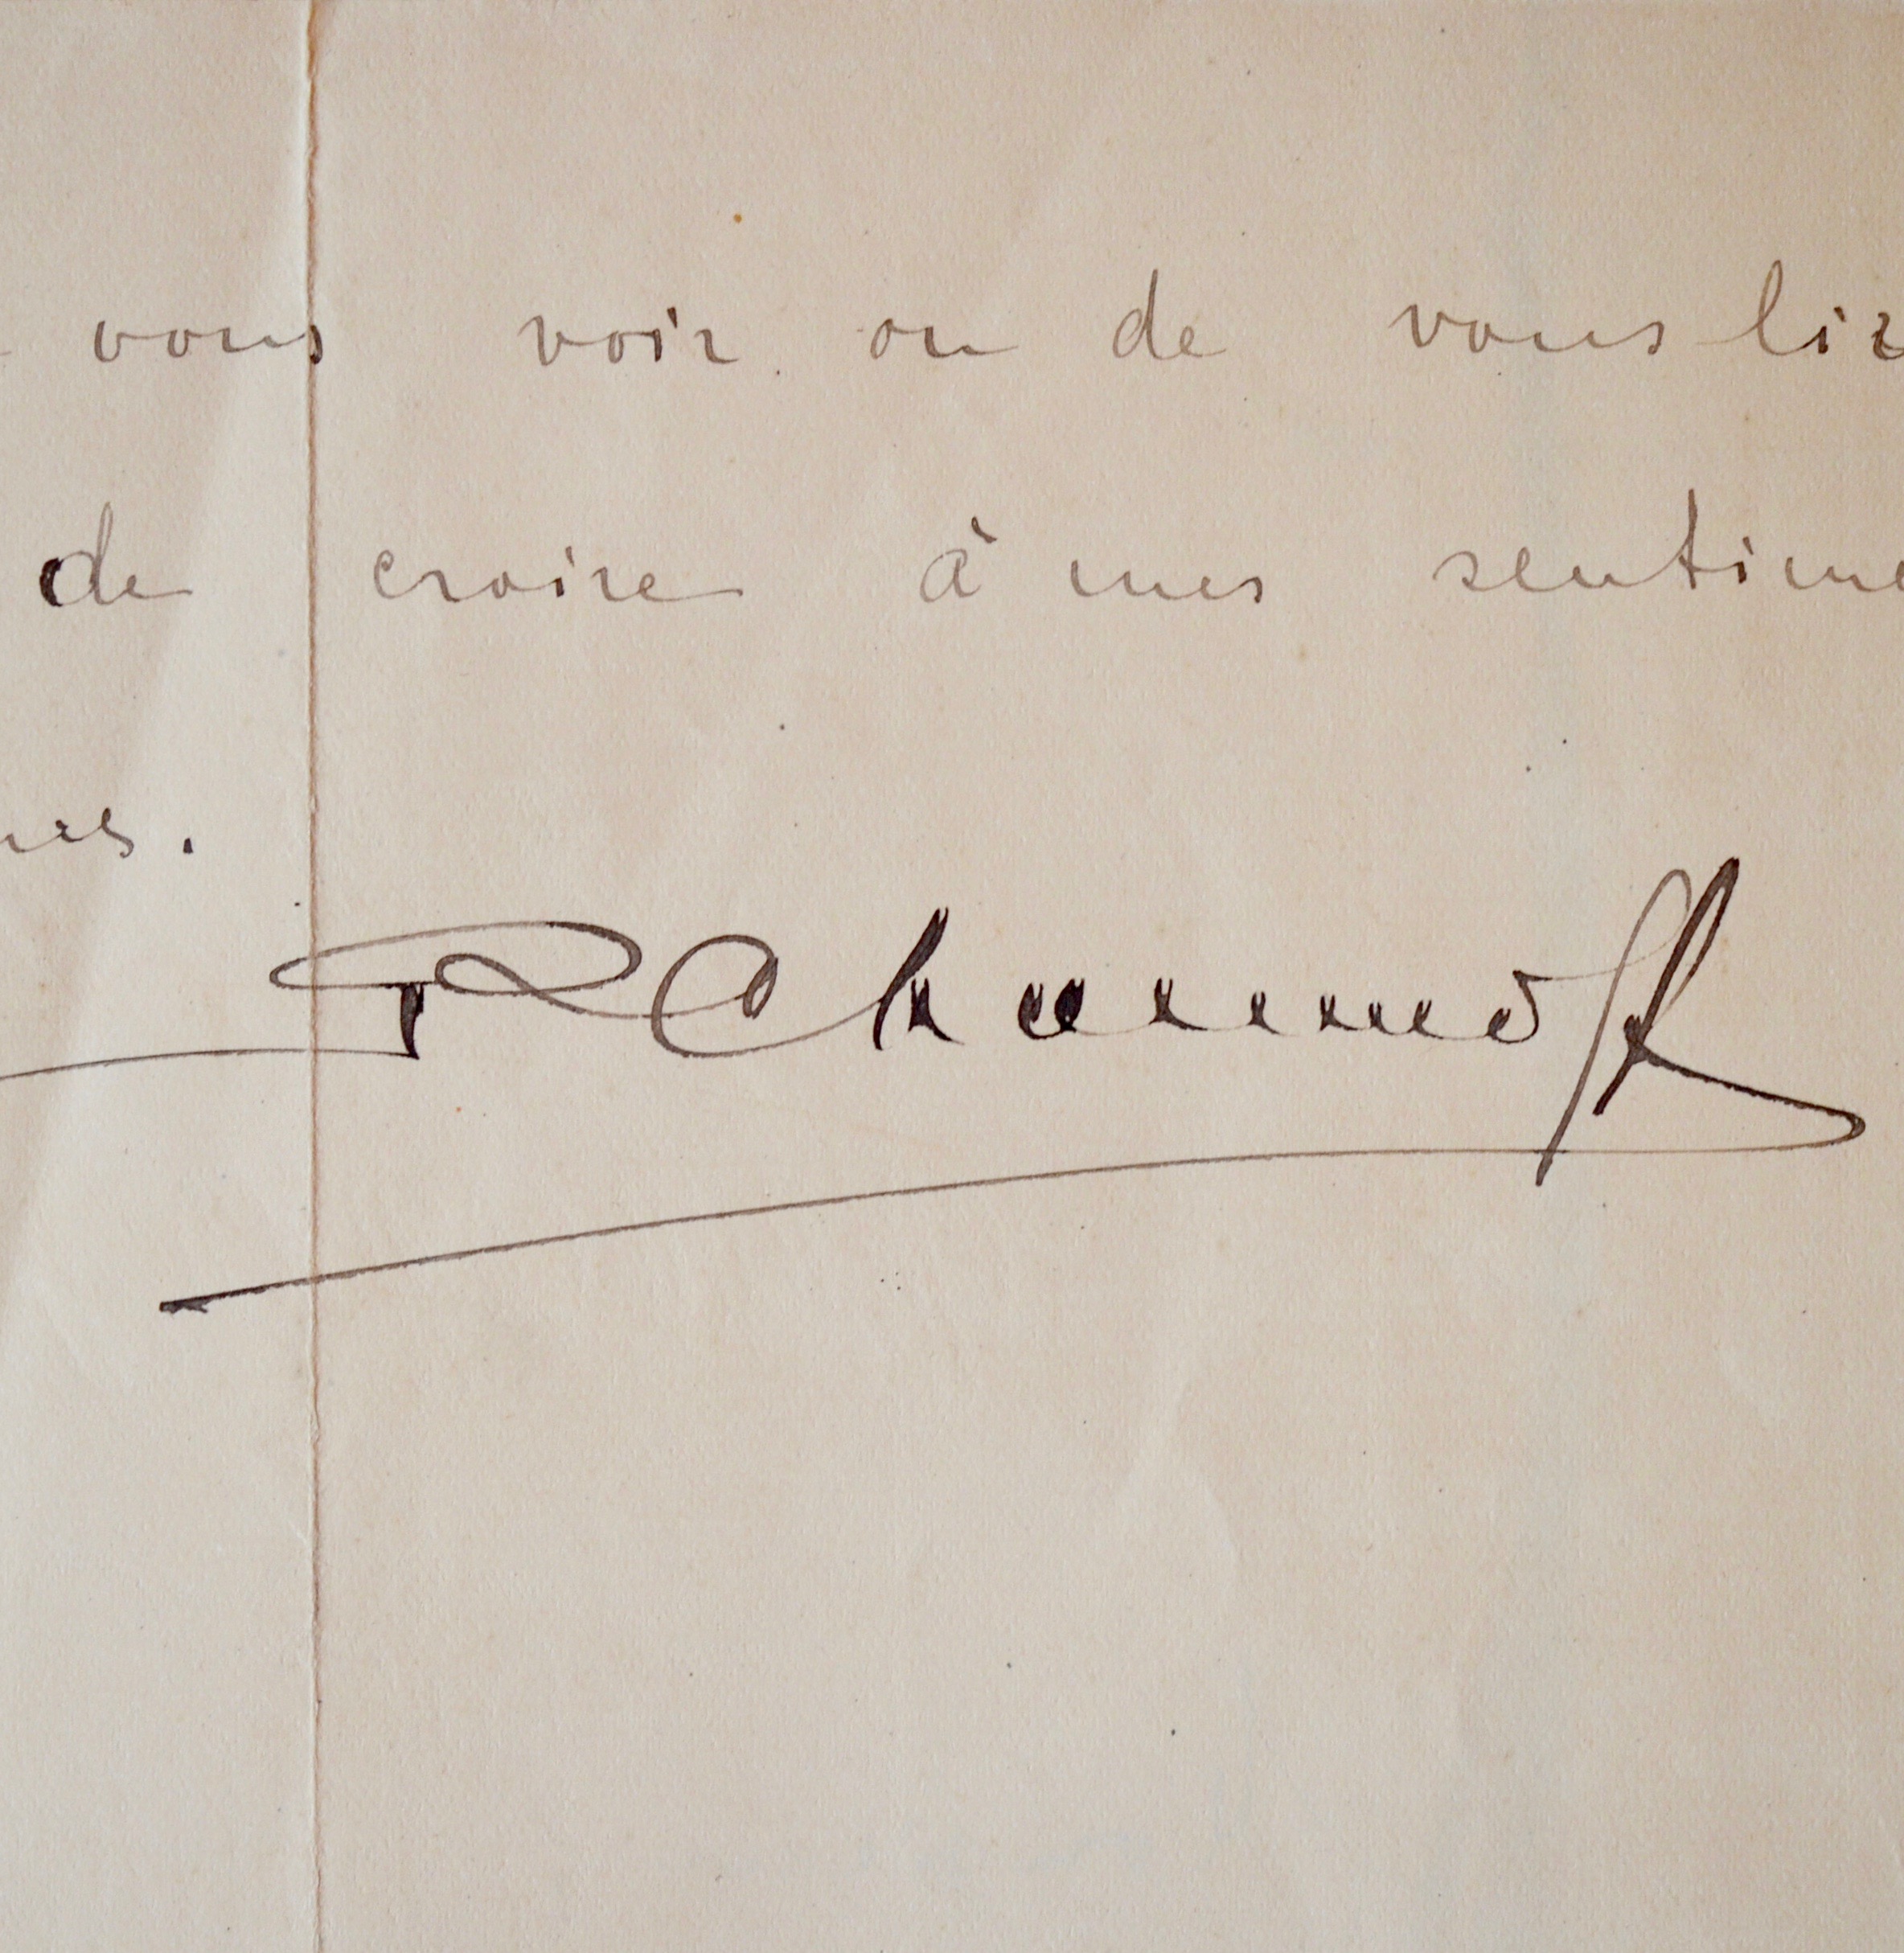 vous voir ou de vous lir
de croire à mes sentime